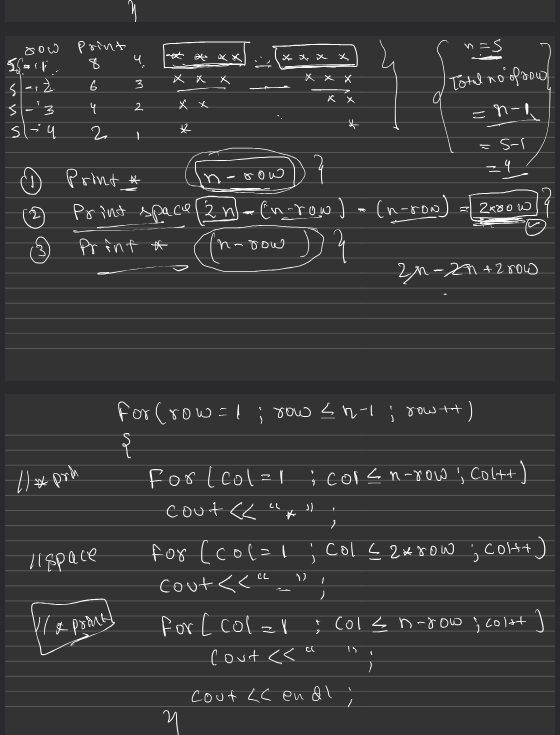 }
row Print n=5
5-1 8 4 * * * * _ _ * * * * Total no of row
5-2 6 3 * * * ___ * * * = n-1
5-3 4 2 * * * * = 5-1
5-4 2 1 * * = 4
① Print * n-row }
② Print space 2n - (n-row) - (n-row) = 2*row }
③ Print * (n-row) }
2n - 2n + 2row
For(row = 1 ; row ≤ n-1 ; row++)
{
//* prin For(col=1 ; col ≤ n-row ; col++)
cout << "*" ;
//space for(col=1 ; col ≤ 2*row ; col++)
cout << "_" ;
//* print for(col=1 ; col ≤ n-row ; col++)
cout << " " ;
cout << endl ;
}